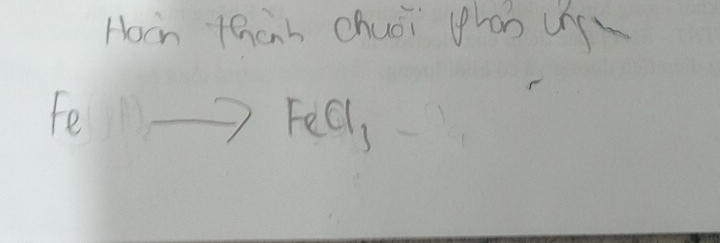 Hoàn thành chuỗi phản ứng
Fe → FeCl3